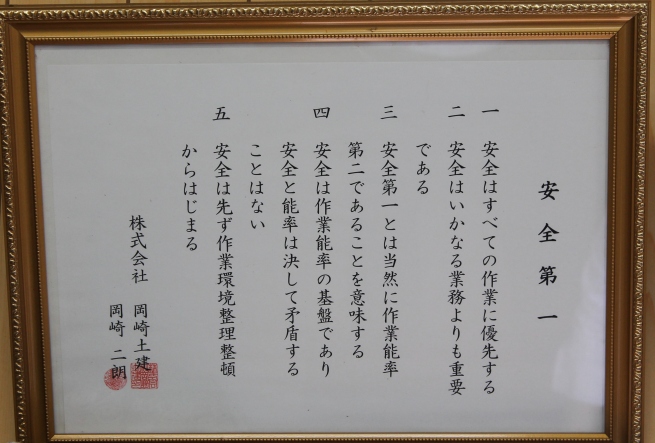 安全第一
一 安全はすべての作業に優先する
二 安全はいかなる業務よりも重要
である
三 安全第一とは当然に作業能率
第二であることを意味する
四 安全は作業能率の基盤であり
安全と能率は決して矛盾する
ことはない
五 安全は先ず作業環境整理整頓
からはじまる
株式会社 岡崎土建
岡崎二朗